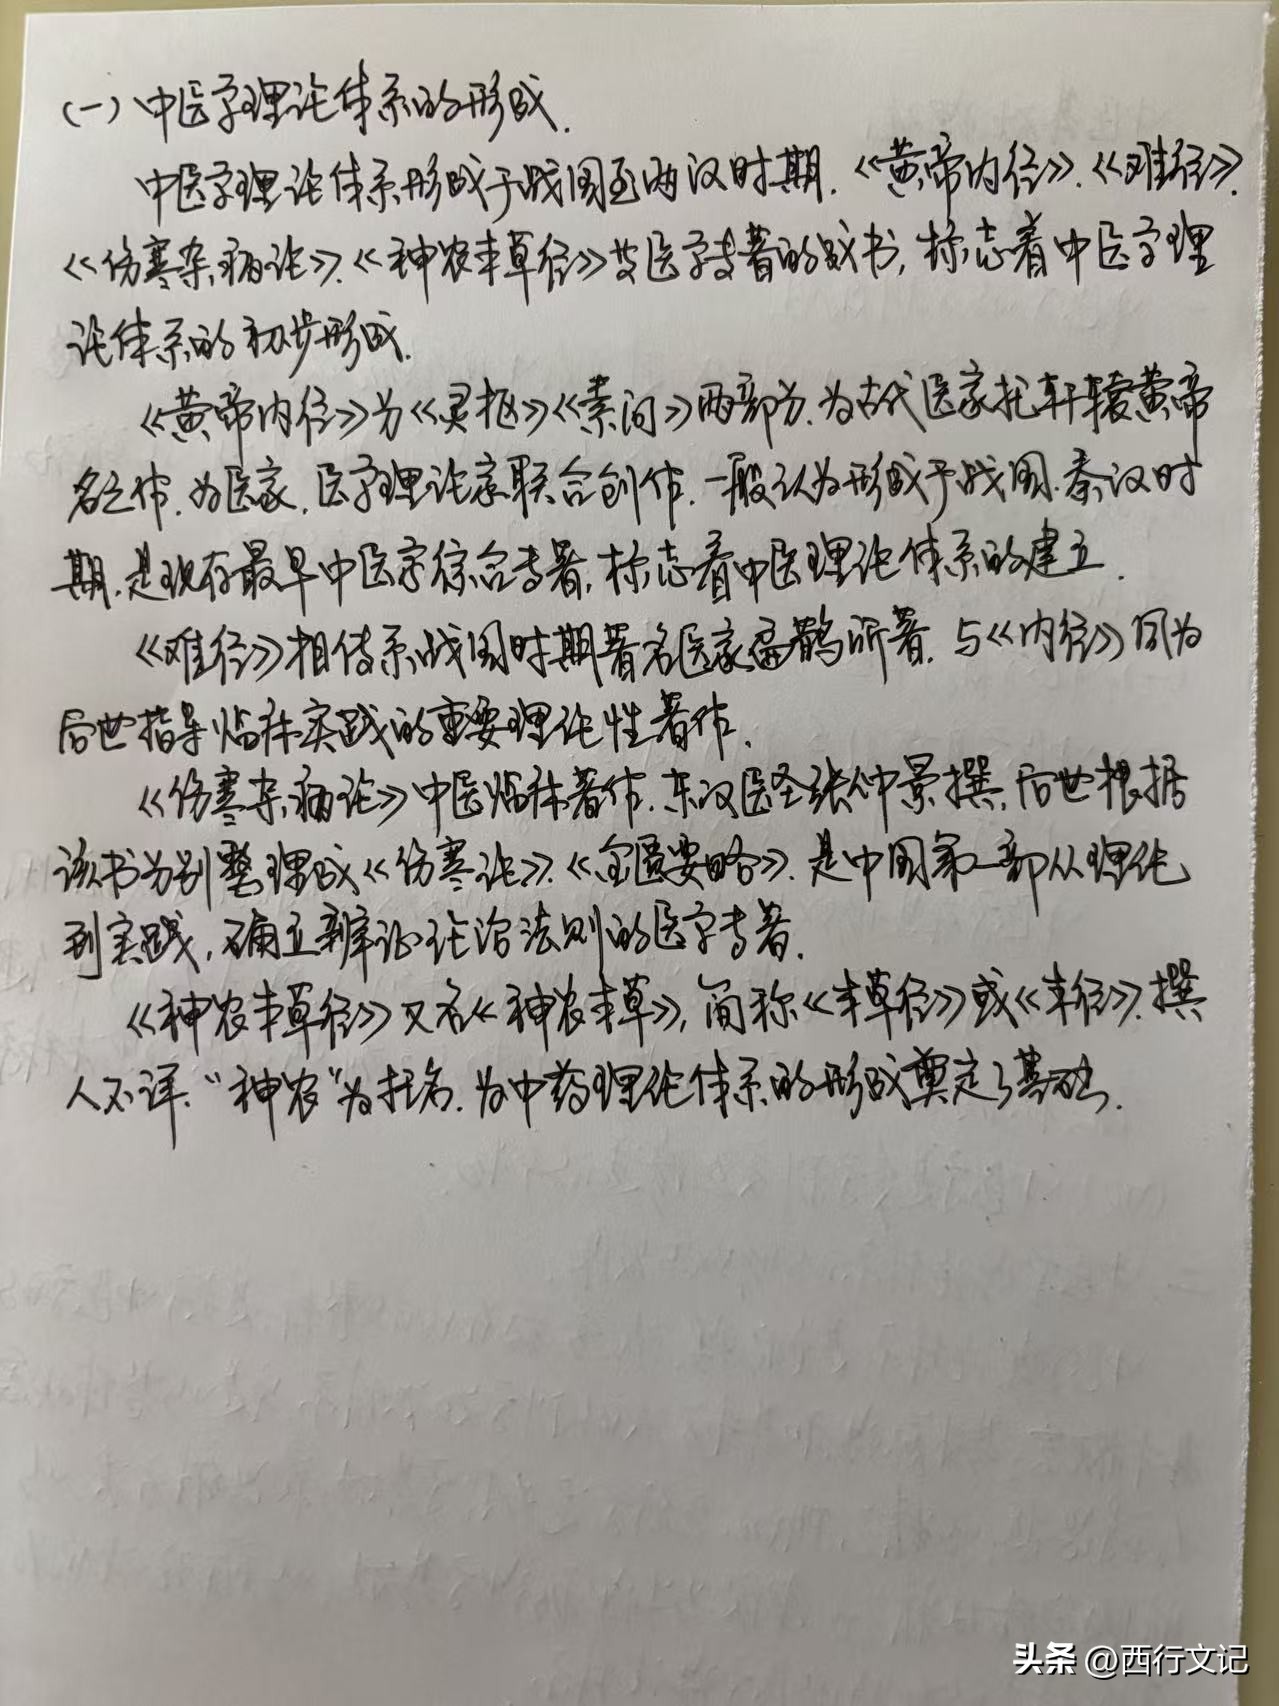 (一)中医学理论体系的形成.
中医学理论体系形成于战国至两汉时期.《黄帝内经》.《难经》.
《伤寒杂病论》.《神农本草经》等医学专著的成书,标志着中医学理
论体系的初步形成.
《黄帝内经》分《灵枢》《素问》两部分.为古代医家托轩辕黄帝
名之作.为医家.医学理论家联合创作.一般认为形成于战国.秦汉时
期.是现存最早中医学综合专著,标志着中医理论体系的建立.
《难经》相传系战国时期著名医家扁鹊所著.与《内经》同为
后世指导临床实践的重要理论性著作.
《伤寒杂病论》中医临床著作.东汉医圣张仲景撰,后世根据
该书分别整理成《伤寒论》.《金匮要略》.是中国第一部从理论
到实践,确立辨证论治法则的医学专著.
《神农本草经》又名《神农本草》,简称《本草经》或《本经》.撰
人不详."神农"为托名.为中药理论体系的形成奠定了基础.
头条 @西行文记